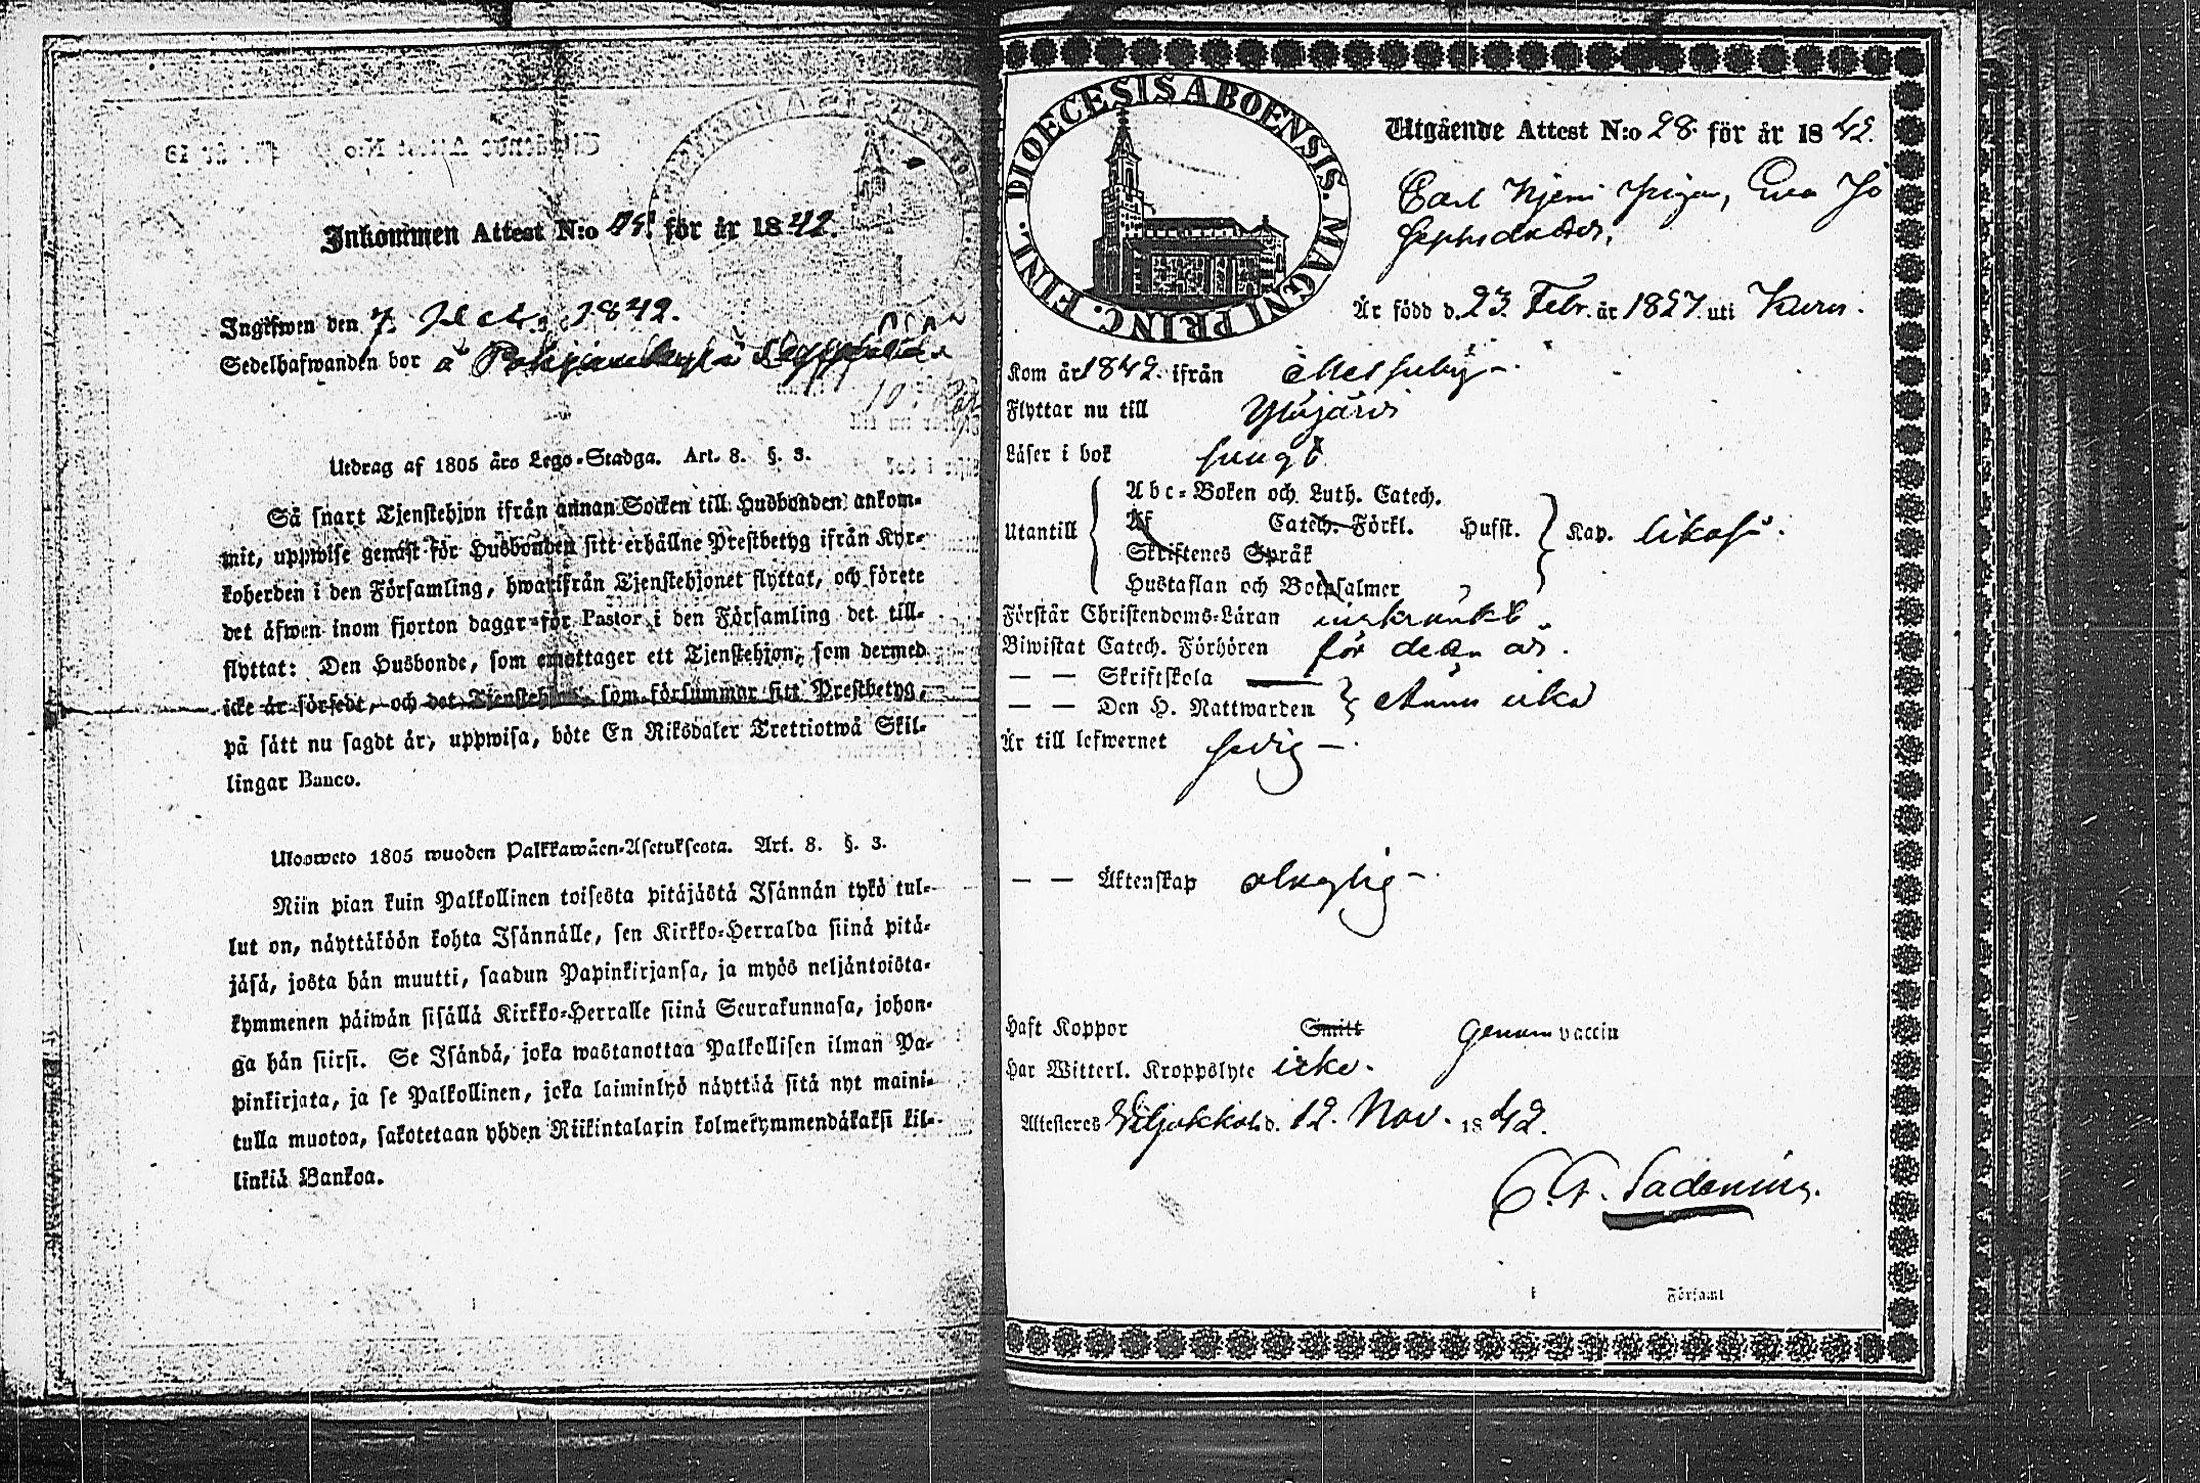 Inkommen Attest N:o för år 1842.
Ingifwen den 7. 1842.
Sedelhafwanden bor å
Utdrag af 1805 års Lego-Stadga. Art. 8. §. 3.
Så snart Tjenstehjon ifrån annan Socken till Husbonden ankom-
mit, uppwise genast för Husbonden sitt erhållne Prestbetyg ifrån Kyr-
koherden i den Församling, hwarifrån Tjenstehjonet flyttat, och förete
det äfwen inom fjorton dagar för Pastor i den Församling det till-
flyttat: Den Husbonde, som emottager ett Tjenstehjon, som dermed
icke är försedt, och det Tjenstehjon, som försummar sitt Prestbetyg,
på sätt nu sagdt är, uppwisa, böte En Riksdaler Trettiotwå Skil-
lingar Banco.
Uloosweto 1805 wuoden Palkkawäen-Asetuksesta. Art. 8. §. 3.
Niin pian kuin Palkollinen toisesta pitäjästä Isännän tykö tul-
lut on, näyttäköön kohta Isännälle, sen Kirkko-Herralda siinä pitä-
jäsä, josta hän muutti, saadun Papinkirjansa, ja myös neljäntoista-
kymmenen päiwän sisällä Kirkko-Herralle siinä Seurakunnasa, johon-
ga hän siirsi. Se Isändä, joka wastanottaa Palkollisen ilman Pa-
pinkirjata, ja se Palkollinen, joka laiminlyö näyttää sitä nyt maini-
tulla muotoa, sakotetaan yhden Riikintalarin kolmekymmendäkaksi kil-
linkiä Bankoa.
DIOECESIS ABOENSIS. MAGNI PRINC. FINL.
Utgående Attest N:o 28. för år 1842.
Carl pigan, Eva Jo
sephsdotter,
Är född d. 23. Febr. år 1827. uti Kuru.
Kom år 1842. ifrån
Flyttar nu till Ylöjärvi
Läser i bok svagt
Abc-Boken och Luth. Catech.
Utantill Af Catech. Förkl. Husst. Kap. likaså.
Skriftenes Språk
Hustaflan och Botpsalmer
Förstår Christendoms-Läran inskränkt
Biwistat Catech. Förhören för detta år.
— — Skriftskola
— — Den H. Nattwarden ännu icke
Är till lefwernet sedig
— — Äktenskap oloflig
Haft Koppor Smitt genom vaccin
Har Witterl. Kroppslyte icke.
Attesteres Viljakkala d. 12. Nov. 1842.
C. G. Sadenius.
Församl